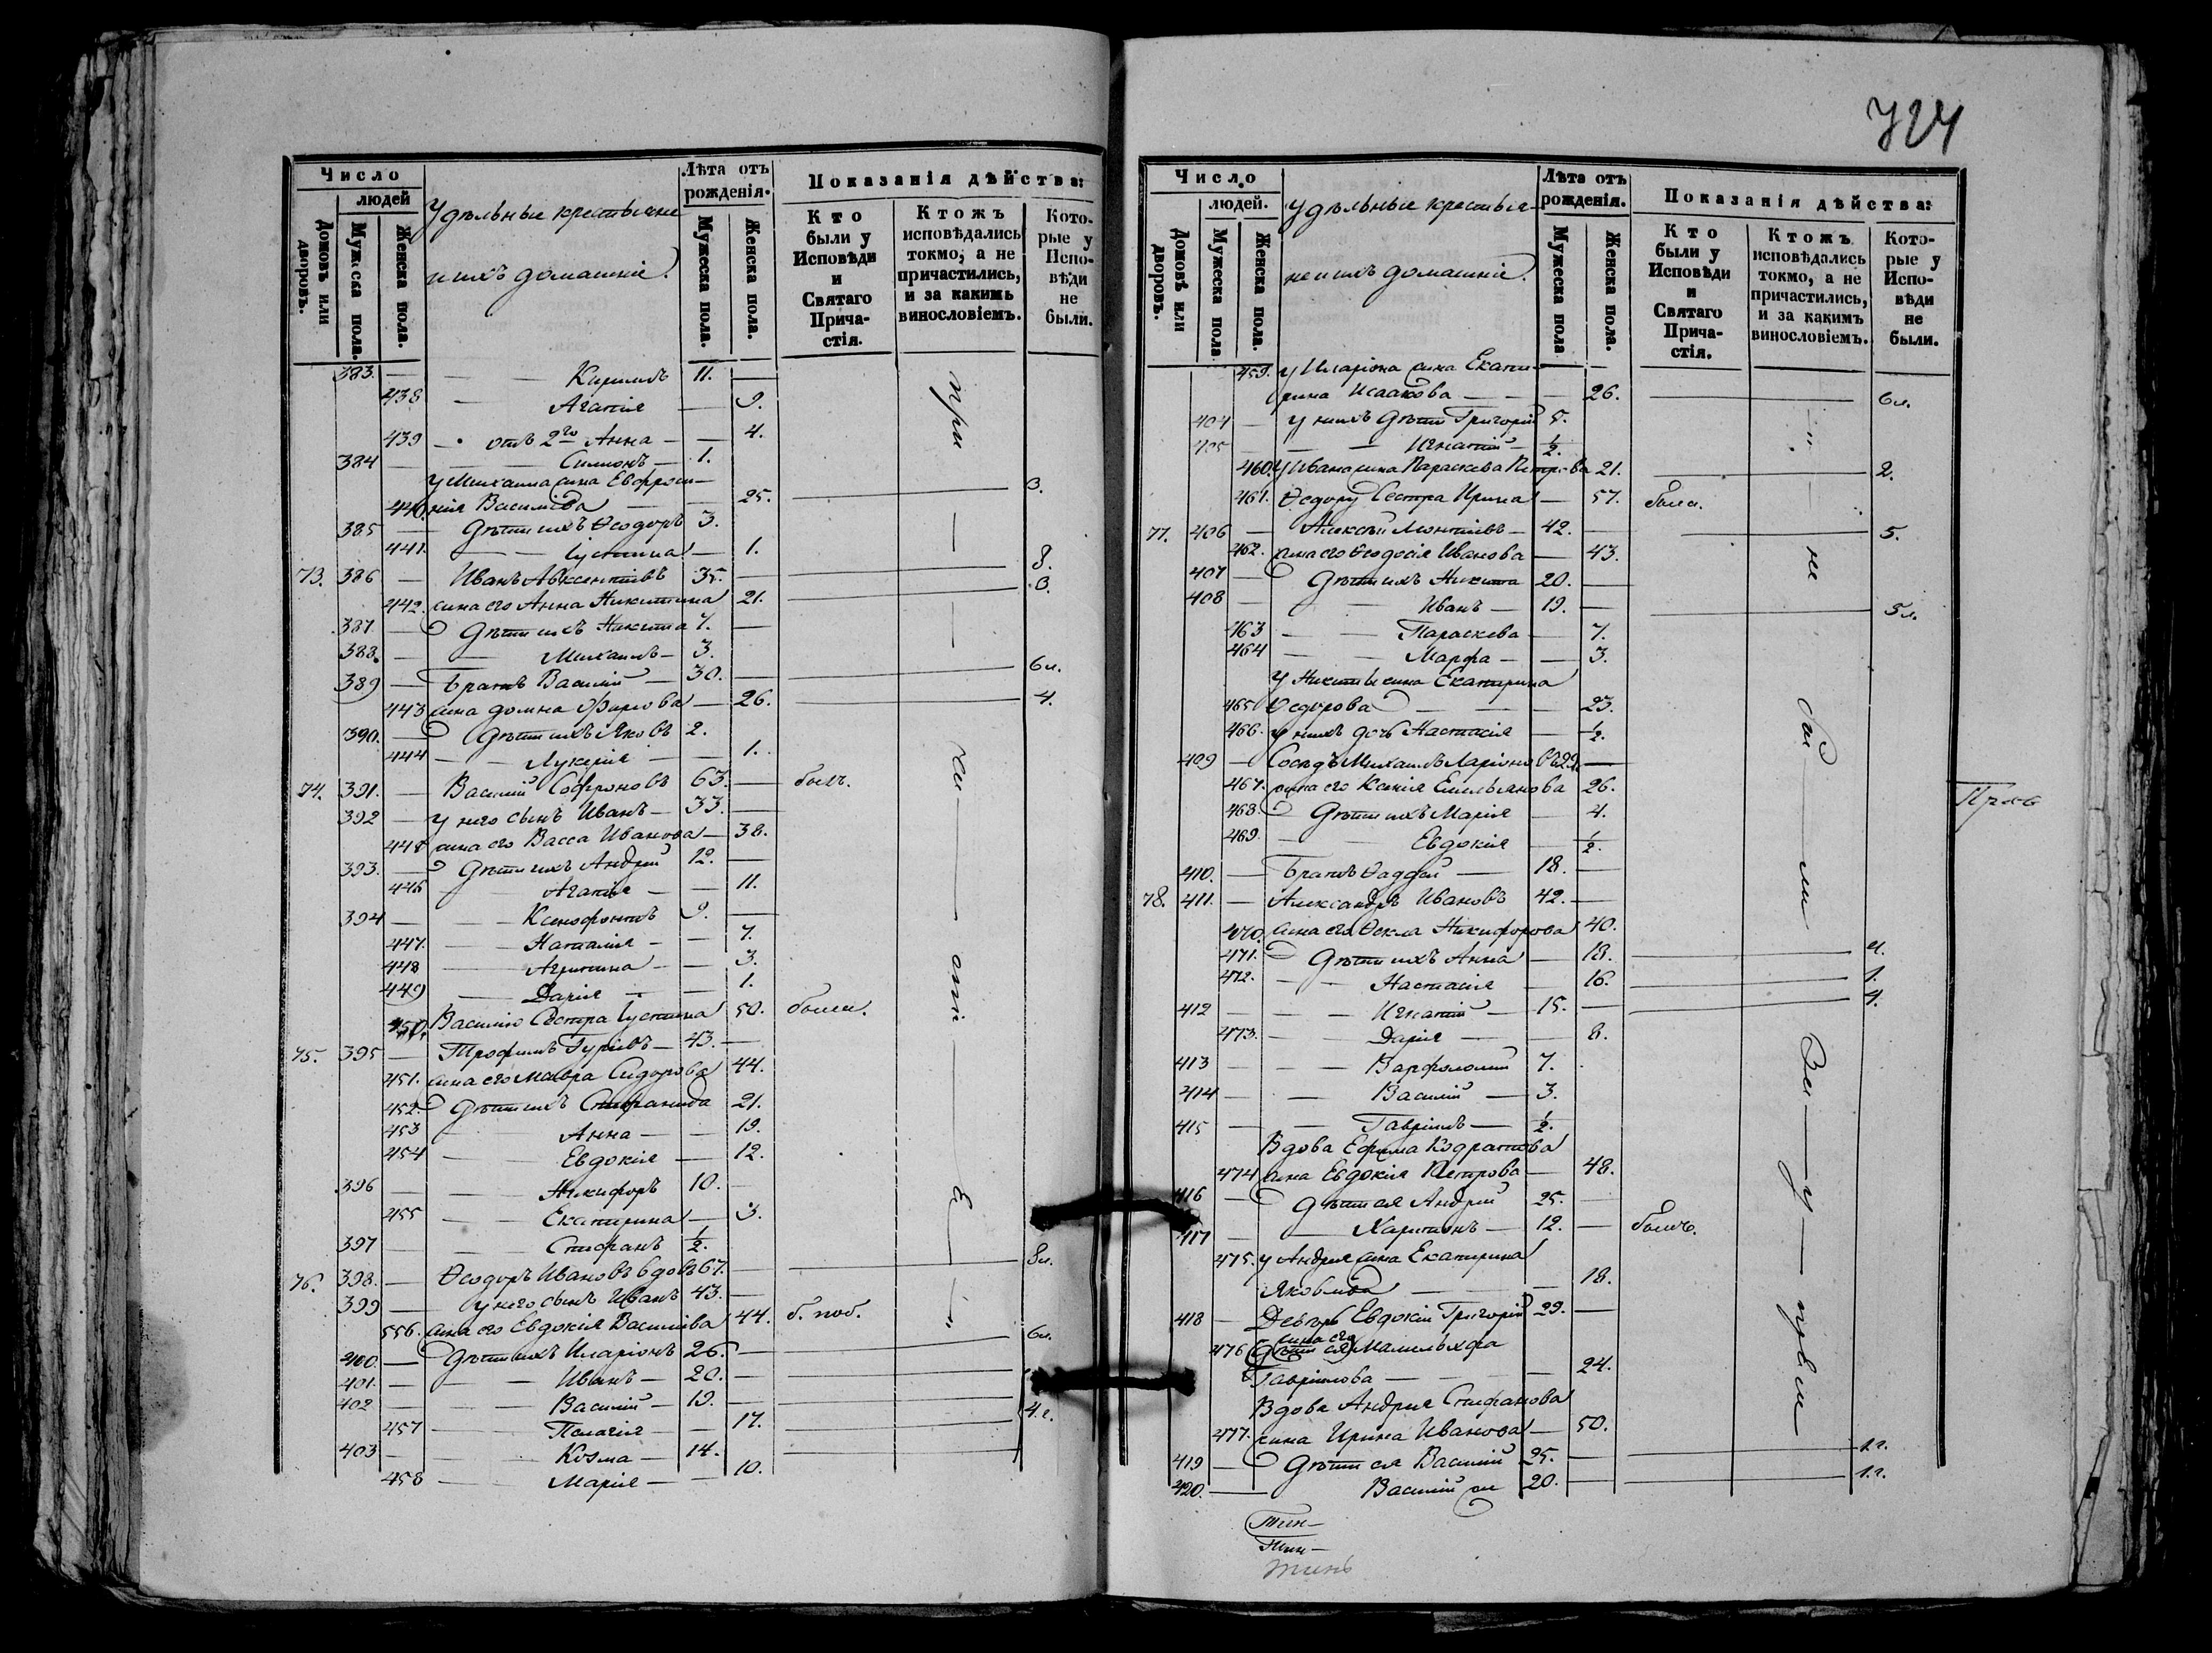 724
Число
людей
Домовъ или дворовъ.
Мужеска пола.
Женска пола.
Удѣльные крестьяне
и ихъ домашніе.
Лѣта отъ рожденія.
Мужеска пола.
Женска пола.
Показанія дѣйства:
Кто были у Исповѣди и Святаго Причастія.
Ктожъ исповѣдались токмо, а не причастились, и за какимъ винословіемъ.
Которые у Исповѣди не были.
383. — Кириллъ 11. —
438 — Агапія — 9.
439 — отъ 2го Анна — 4.
384 — Симионъ — 1.
у Михаила жена Евфроси-
440. нія Василіева — 25. — 3.
385 — дѣти ихъ Ѳеодоръ 3.
441. — Іустина — 1.
73. 386 — Иванъ Авксентіевъ 35. — 8.
442. жена его Анна Никитина 21. — 3.
387. — дѣти ихъ Никита 7. —
388. — Михаилъ — 3.
389 — Братъ Василій — 30. — 6л.
443 жена Домна Фирсова — 26. — 4.
390. — дѣти ихъ Яковъ 2.
444 — Лукерія — 1.
74. 391. — Василій Софроновъ 63. — былъ.
392 — у него сынъ Иванъ — 33. —
445 жена его Васса Иванова — 38.
393. — дѣти ихъ Андрей 12. —
446 — Агапія — 11.
394 — Ксенофонтъ 9. —
447. — Наталія — 7.
448 — Агрипина — 3.
449 — Дарія — 1.
450. Василію сестра Іустина 50. была.
75. 395 — Трофимъ Гуріевъ — 43. —
451. жена его Мавра Сидорова 44.
452. дѣти ихъ Стефанида 21.
453 — Анна — 19.
454 — Евдокія — 12.
396 — Никифоръ 10. —
455 — Екатерина — 3.
397 — Стефанъ 1/2.
76. 398. — Ѳеодоръ Ивановъ вдовъ 67. — 8л.
399 — у него сынъ Иванъ 43. —
556. жена его Евдокія Василіева 44. б. поб.
400. — дѣти ихъ Иларіонъ 26. — 6л.
401. — Иванъ — 20. —
402 — Василій — 19. —
457 — Пелагія — 17. — 4.г.
403 — Козма — 14. —
458 — Марія — 10.
Число
людей.
Домовъ или дворовъ.
Мужеска пола
Женска пола.
Удѣльные крестья-
не и ихъ домашніе.
Лѣта отъ рожденія.
Мужеска пола
Женска пола.
Показанія дѣйства:
Кто были у Исповѣди и Святаго Причастія.
Ктожъ исповѣдались токмо, а не причастились, и за какимъ винословіемъ.
Которые у Исповѣди не были.
459. у Иларіона жена Екате-
рина Исаакова — 26. — 6л.
404 — у нихъ дѣти Григорій 5.
405 — Игнатій — 1/2.
460. у Ивана жена Параскева Петрова 21. — 2.
461. Ѳедору сестра Ирина — 57. была.
77. 406 — Алексѣй Леонтіевъ — 42. — 5.
462. жена его Ѳеодосія Иванова — 43.
407 — дѣти ихъ Никита 20. —
408 — Иванъ — 19. — 5л.
463 — Параскева — 7.
464 — Марфа — 3.
у Никиты жена Екатерина
465 Ѳедорова — 23.
466. у нихъ дочь Настасія — 1/2.
409 — Сосѣдъ Михаилъ Ларіоновъ 29. —
467. жена его Ксенія Емельянова 26.
468. дѣти ихъ Марія — 4.
469. — Евдокія — 1/2.
410. — Братъ Ѳаддей — 18. —
78. 411. — Александръ Ивановъ 42. —
470. жена его Ѳекла Никифорова 40.
471. дѣти ихъ Анна — 18. — 4.
472. — Настасія — 16. — 1.
412 — Игнатій — 15. — 4.
473. — Дарія — 8.
413 — Варфоломей 7.
414 — Василій — 3.
415 — Гавріилъ — 1/2.
Вдова Ефима Кодратова
474 жена Евдокія Петрова — 48.
416 — дѣти ея Андрей 25. —
417 — Харитонъ — 12. — былъ.
475. у Андрея жена Екатерина
Яковлева — 18.
418 — Деверь Евдокіи Григорій 29. —
476 жена его Мамельхфа
Гавріилова — 24.
Вдова Андрея Стефанова
477. жена Ирина Иванова — 50.
419 — дѣти ея Василій 25. — 1.г.
420. — Василій же 20. — 1.г.